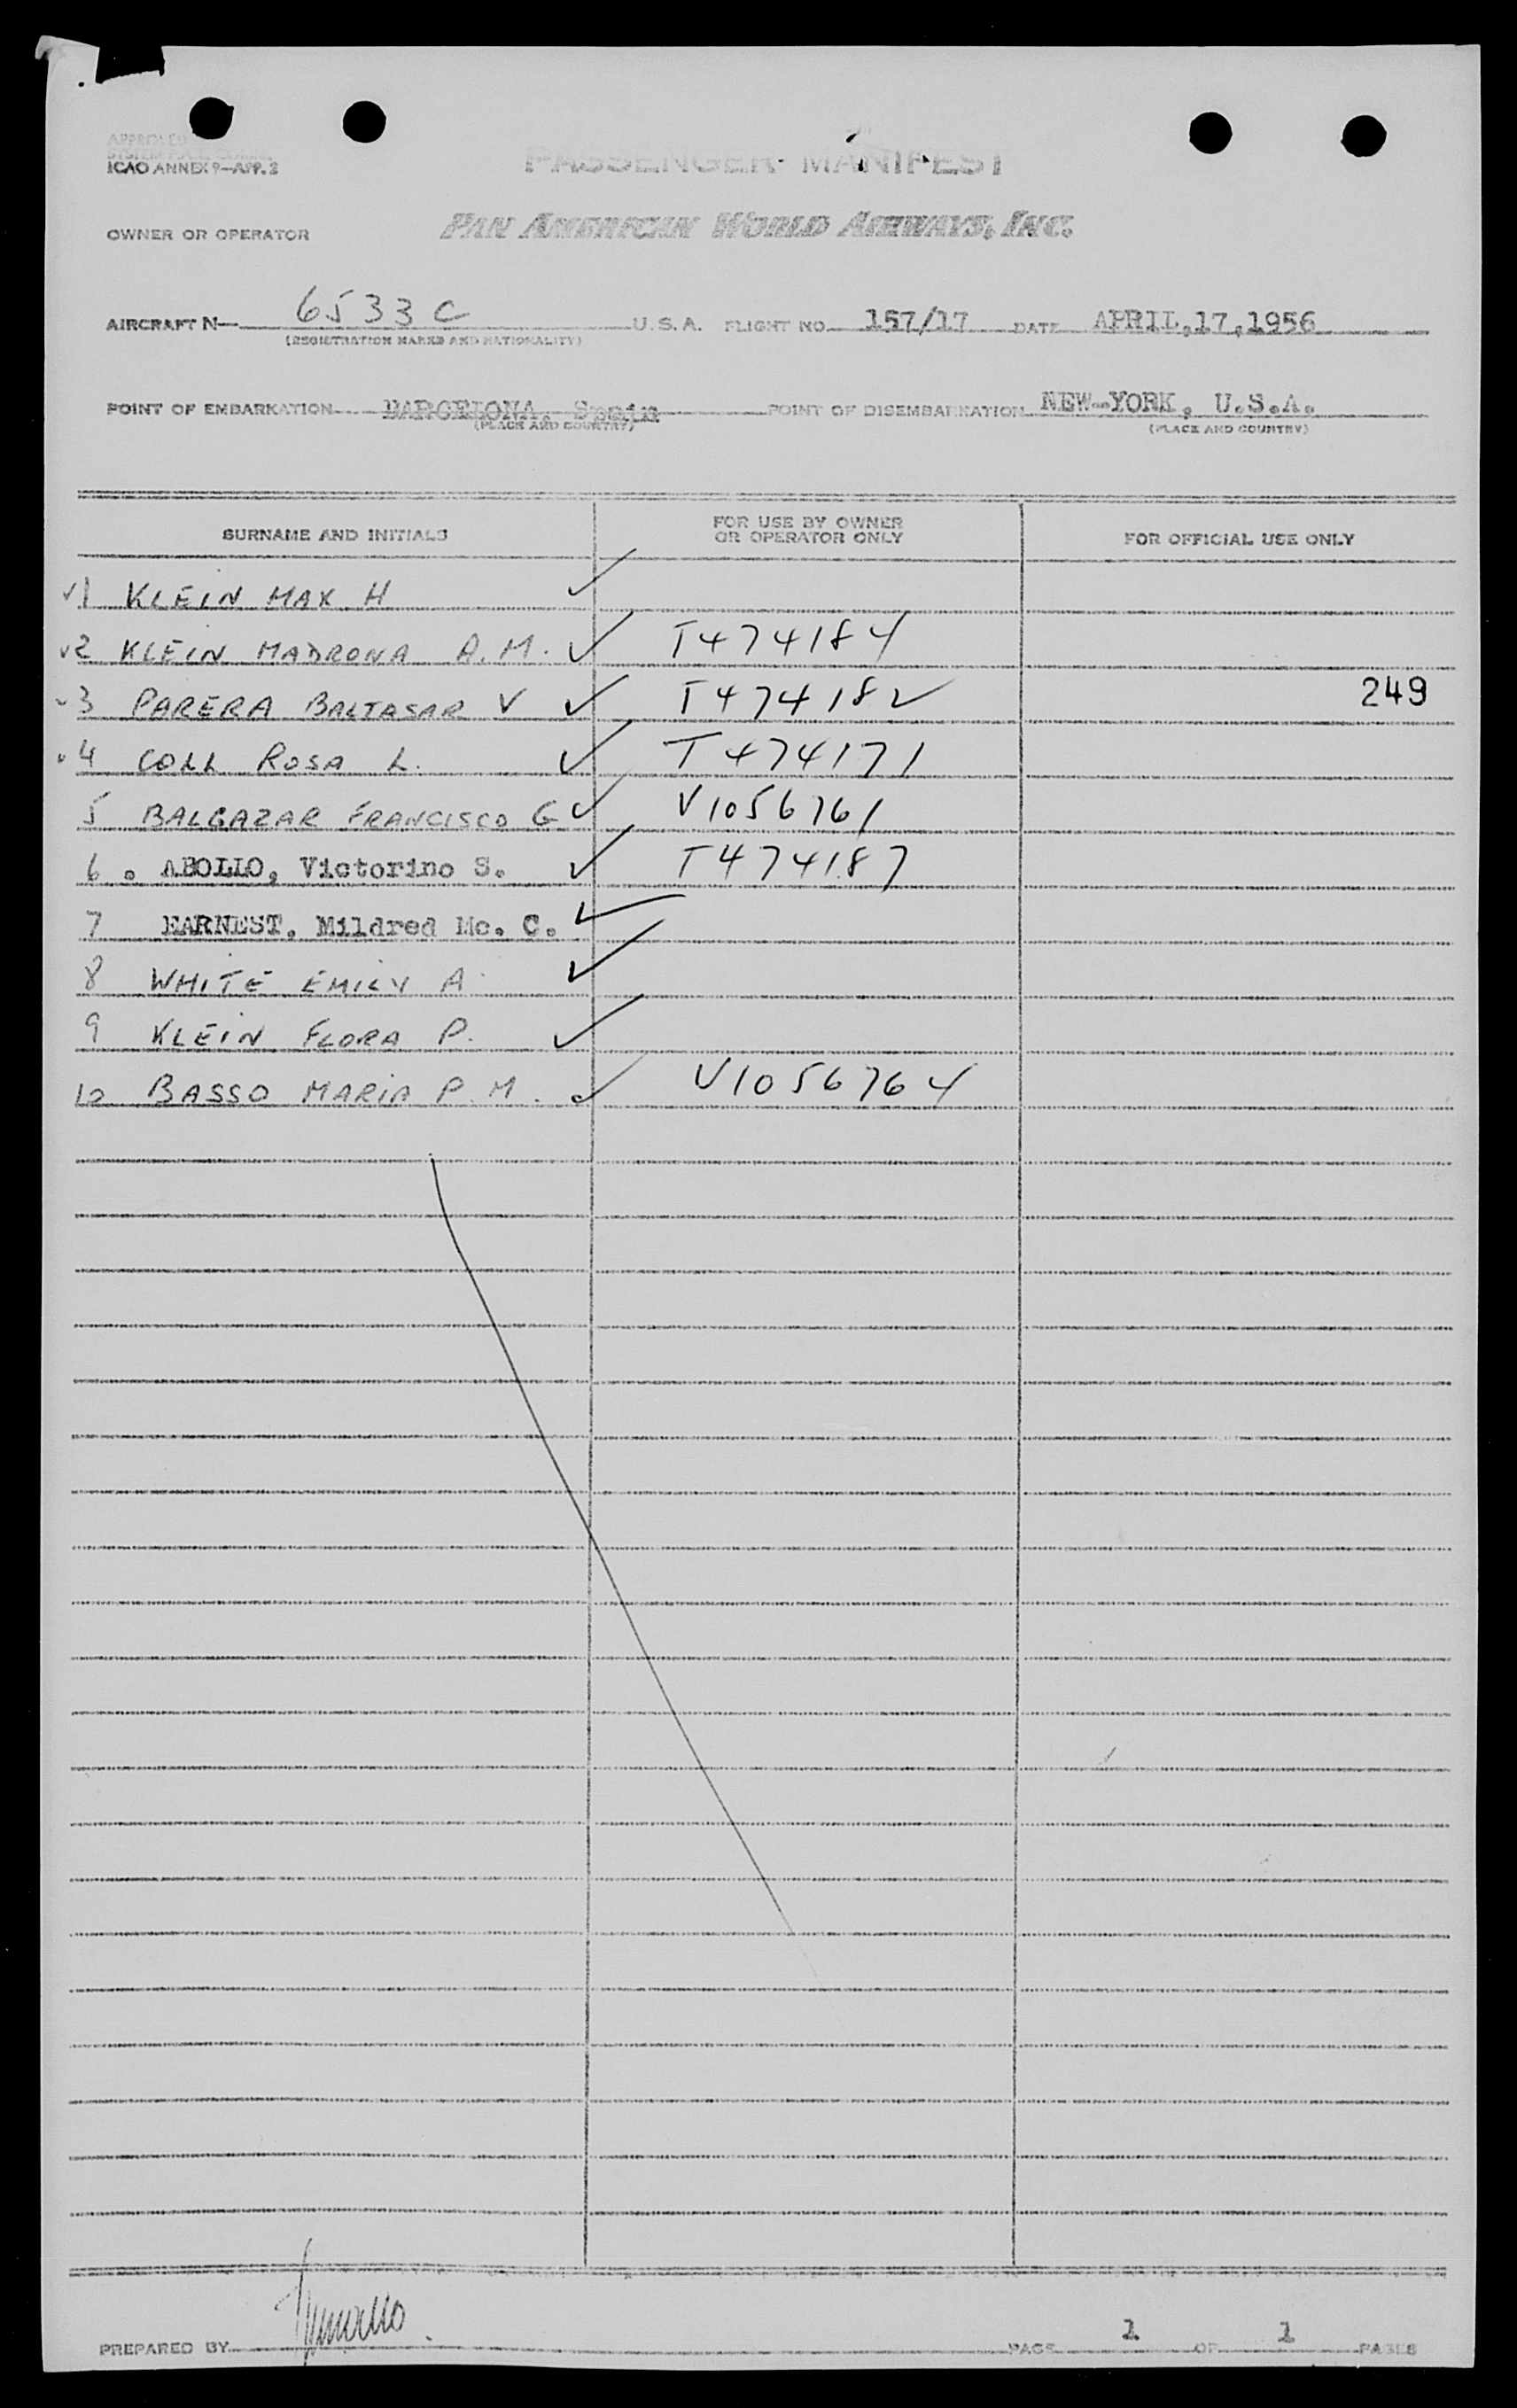 ICAO ANNEX 9—APP. 2
PASSENGER MANIFEST
OWNER OR OPERATOR PAN AMERICAN WORLD AIRWAYS, INC.
AIRCRAFT N— 6533C U.S.A. FLIGHT NO. 157/17 DATE APRIL,17,1956
(REGISTRATION MARKS AND NATIONALITY)
POINT OF EMBARKATION BARCELONA, Spain POINT OF DISEMBARKATION NEW-YORK, U.S.A.
(PLACE AND COUNTRY) (PLACE AND COUNTRY)
SURNAME AND INITIALS FOR USE BY OWNER OR OPERATOR ONLY FOR OFFICIAL USE ONLY
1 KLEIN MAX H
2 KLEIN MADRONA A.M. T474184
3 PARERA BALTASAR V T474182 249
4 COLL ROSA L. T474171
5 BALCAZAR FRANCISCO G V1056761
6 . ABOLLO, Victorino S. T474187
7 EARNEST, Mildred Mc. C.
8 WHITE EMILY A
9 KLEIN FLORA P.
10 BASSO MARIA P.M. V1056764
PREPARED BY PAGE 1 OF 1 PAGES